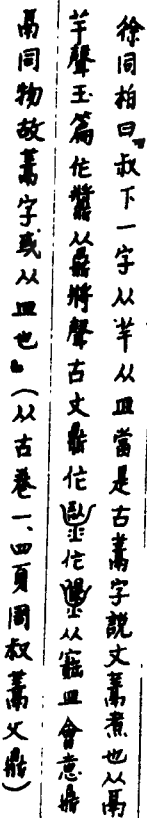 徐同柏曰『叔下一字从羊从皿當是古字說文煮也从鬲
羊聲玉篇作䵼从鼎將聲古文鼎作作从皿會意鼎
鬲同物故字或从皿也』（从古卷一、四頁周叔父鼎）